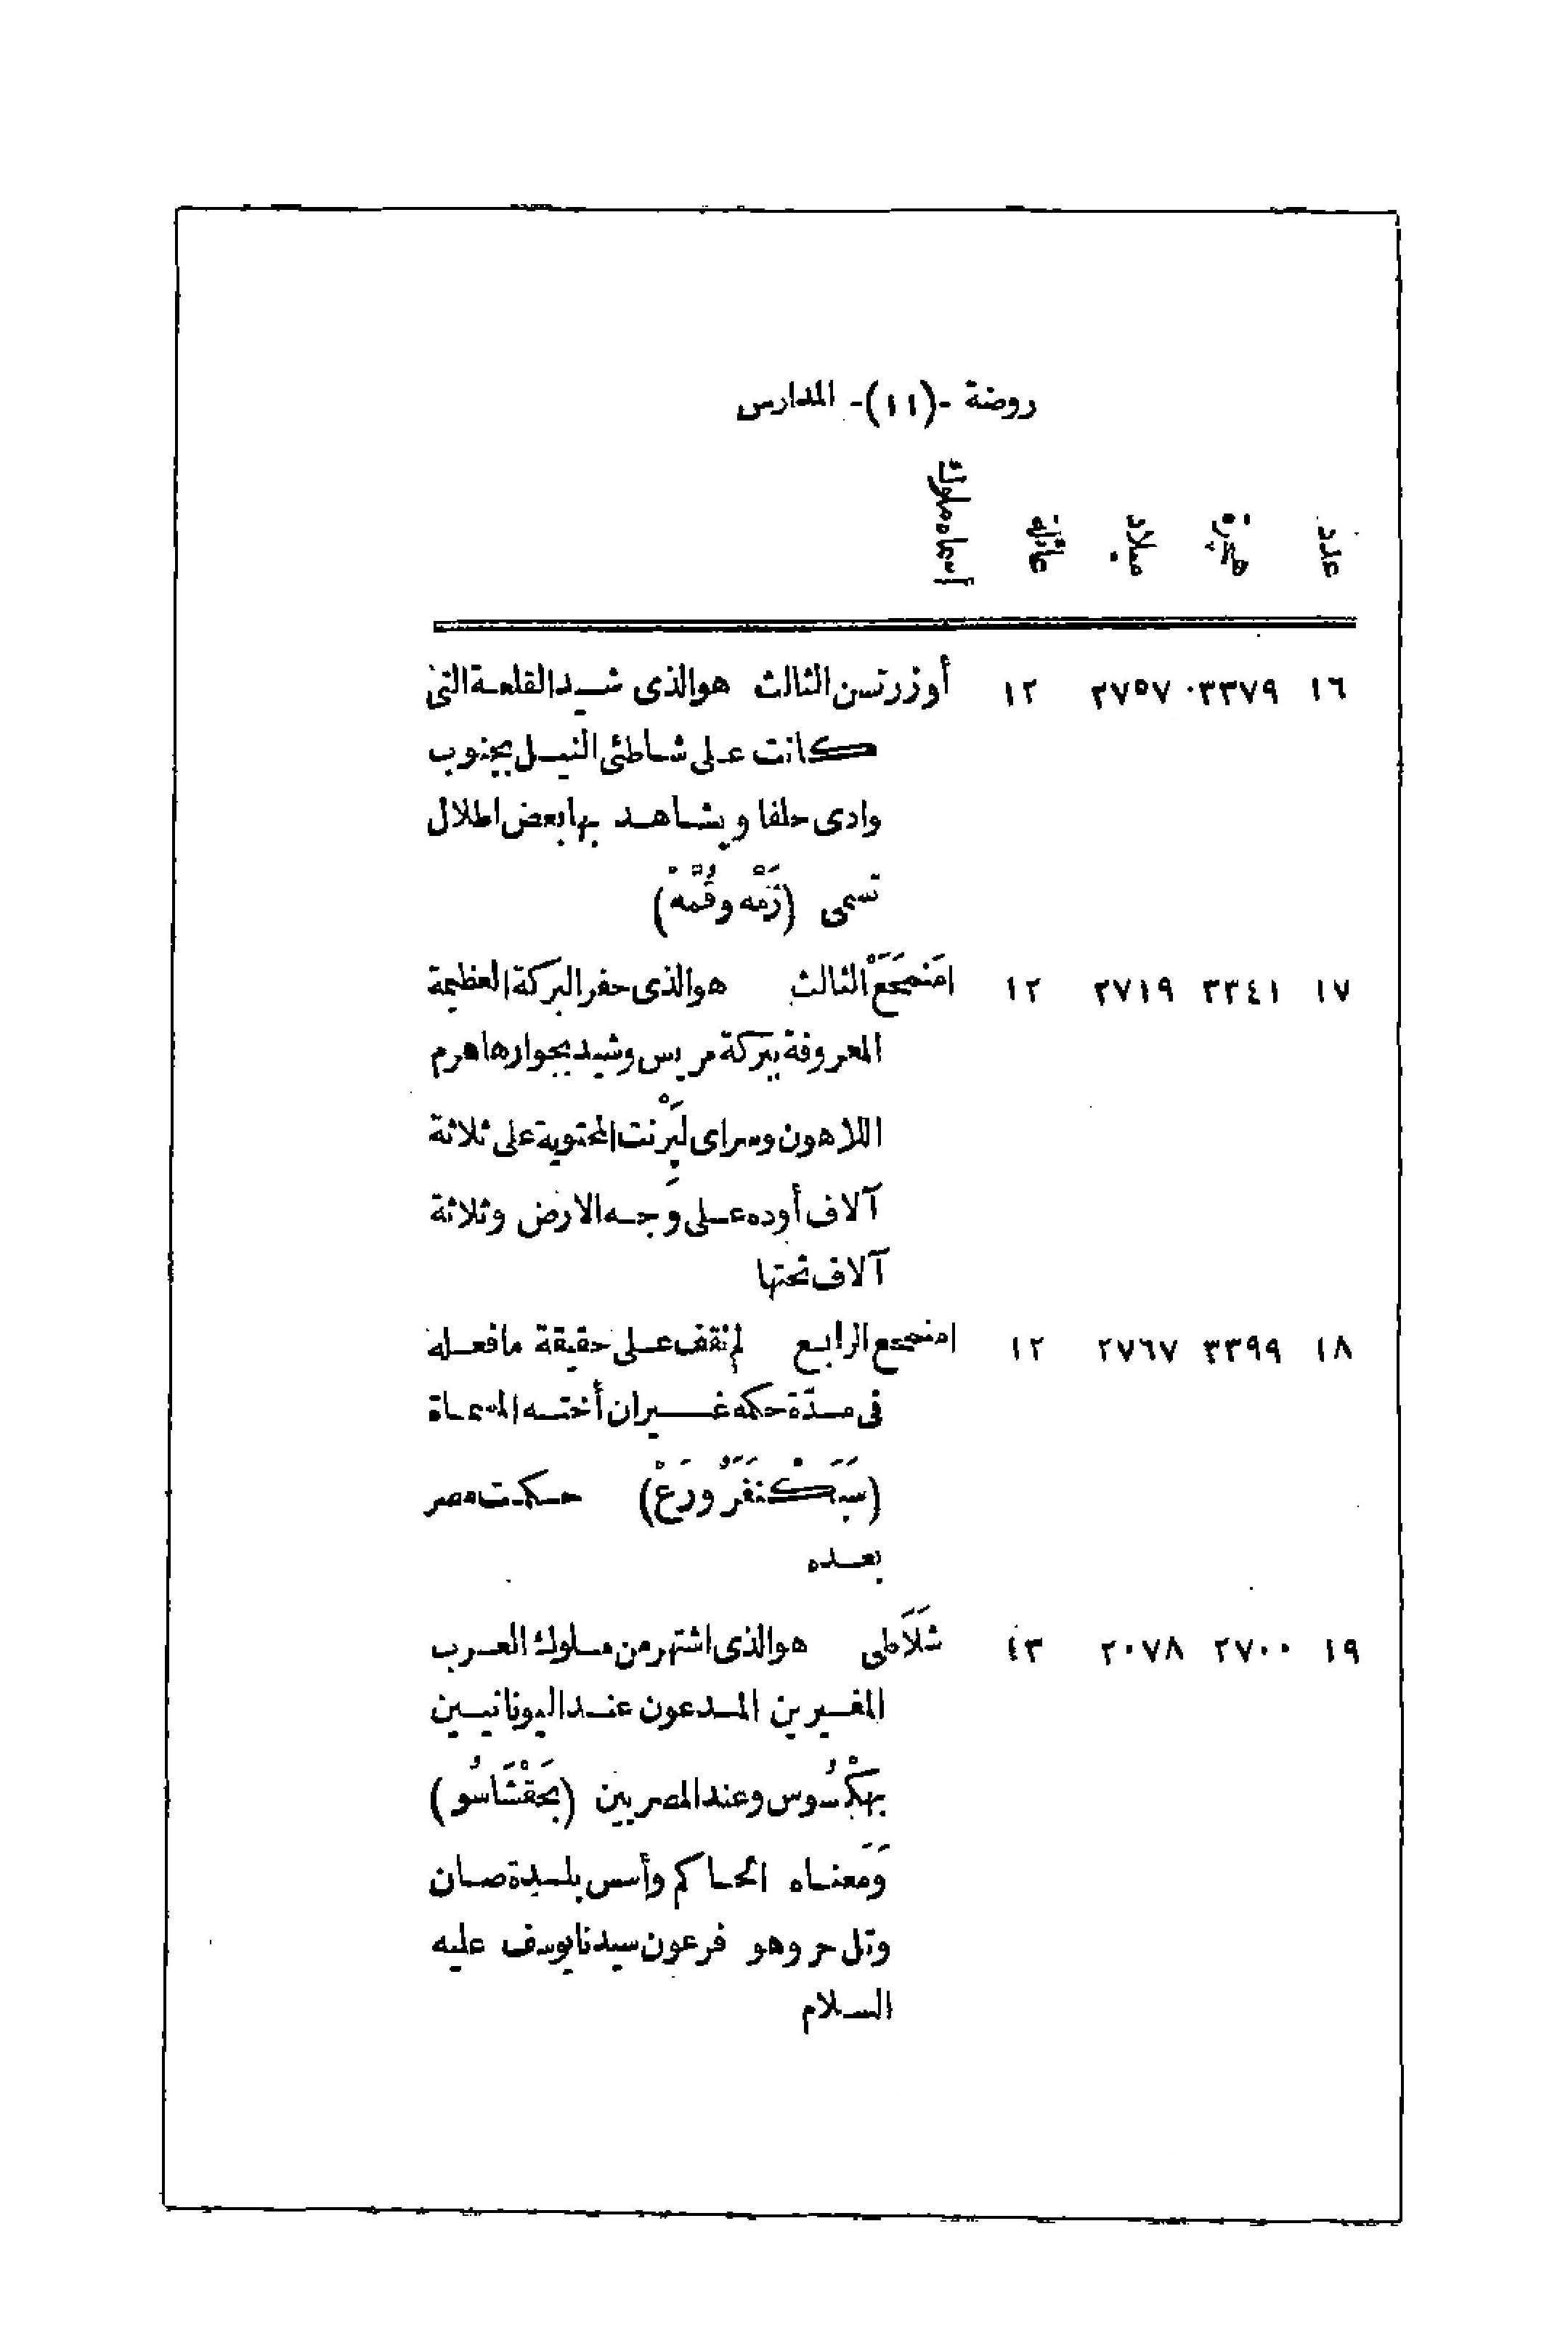 روضة -(١١)- المدارس
عدد هجرة ميلاد عائلة أسماء ملوك
١٦ ٣٣٧٩ ٢٧٥٧ ١٢ أوزرتسن الثالث هو الذى شيد القلعة التى
كانت على شاطئ النيل بجنوب
وادى حلفا ويشاهد بها بعض اطلال
تسمى (زَمْه وقُمَّهْ)
١٧ ٣٣٤١ ٢٧١٩ ١٢ امَنمحَعَْ الثالث هو الذى حفر البركة العظيمة
المعروفة ببركة مريس وشيد بجوارها هرم
اللاهون وسراى لَبِرْنت المحتوية على ثلاثة
آلاف أوده على وَجه الارض وثلاثة
آلاف تحتها
١٨ ٣٣٩٩ ٢٧٦٧ ١٢ امنمحع الرابع لم نقف على حقيقة ما فعله
فى مدّة حكمه غير ان أخته المسماة
(سَبَكْنَفَرُورَعْ) حكمت مصر
بعده
١٩ ٢٧٠٠ ٢٠٧٨ ٤٣ شَلاَطى هو الذى اشتهر من ملوك العرب
المغيرين المدعون عند اليونانيين
بهكْسُوس وعند المصريين (بحَقْشَاسُو)
وَمَعناه الحاكم وأسس بلدة صان
وتل حر وهو فرعون سيدنا يوسف عليه
السلام